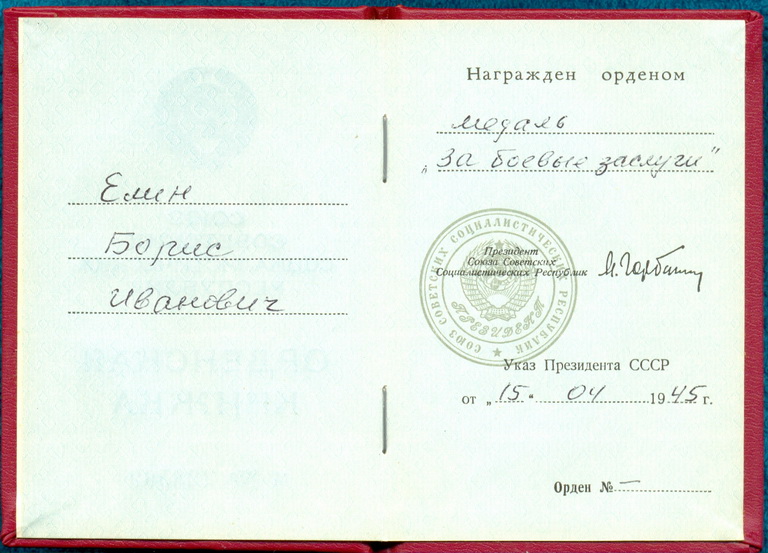 Елин
Борис
Иванович
Награжден орденом
медаль
„За боевые заслуги"
СОЮЗ СОВЕТСКИХ СОЦИАЛИСТИЧЕСКИХ РЕСПУБЛИК
ПРЕЗИДЕНТ
Президент
Союза Советских
Социалистических Республик
М. Горбачев
Указ Президента СССР
от „15" 04 1945 г.
Орден № —